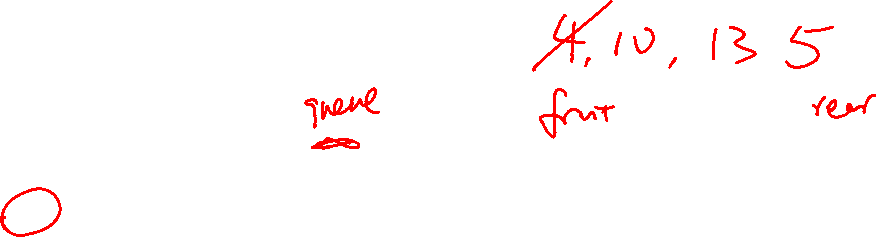 4, 10, 13 5
queue front rear